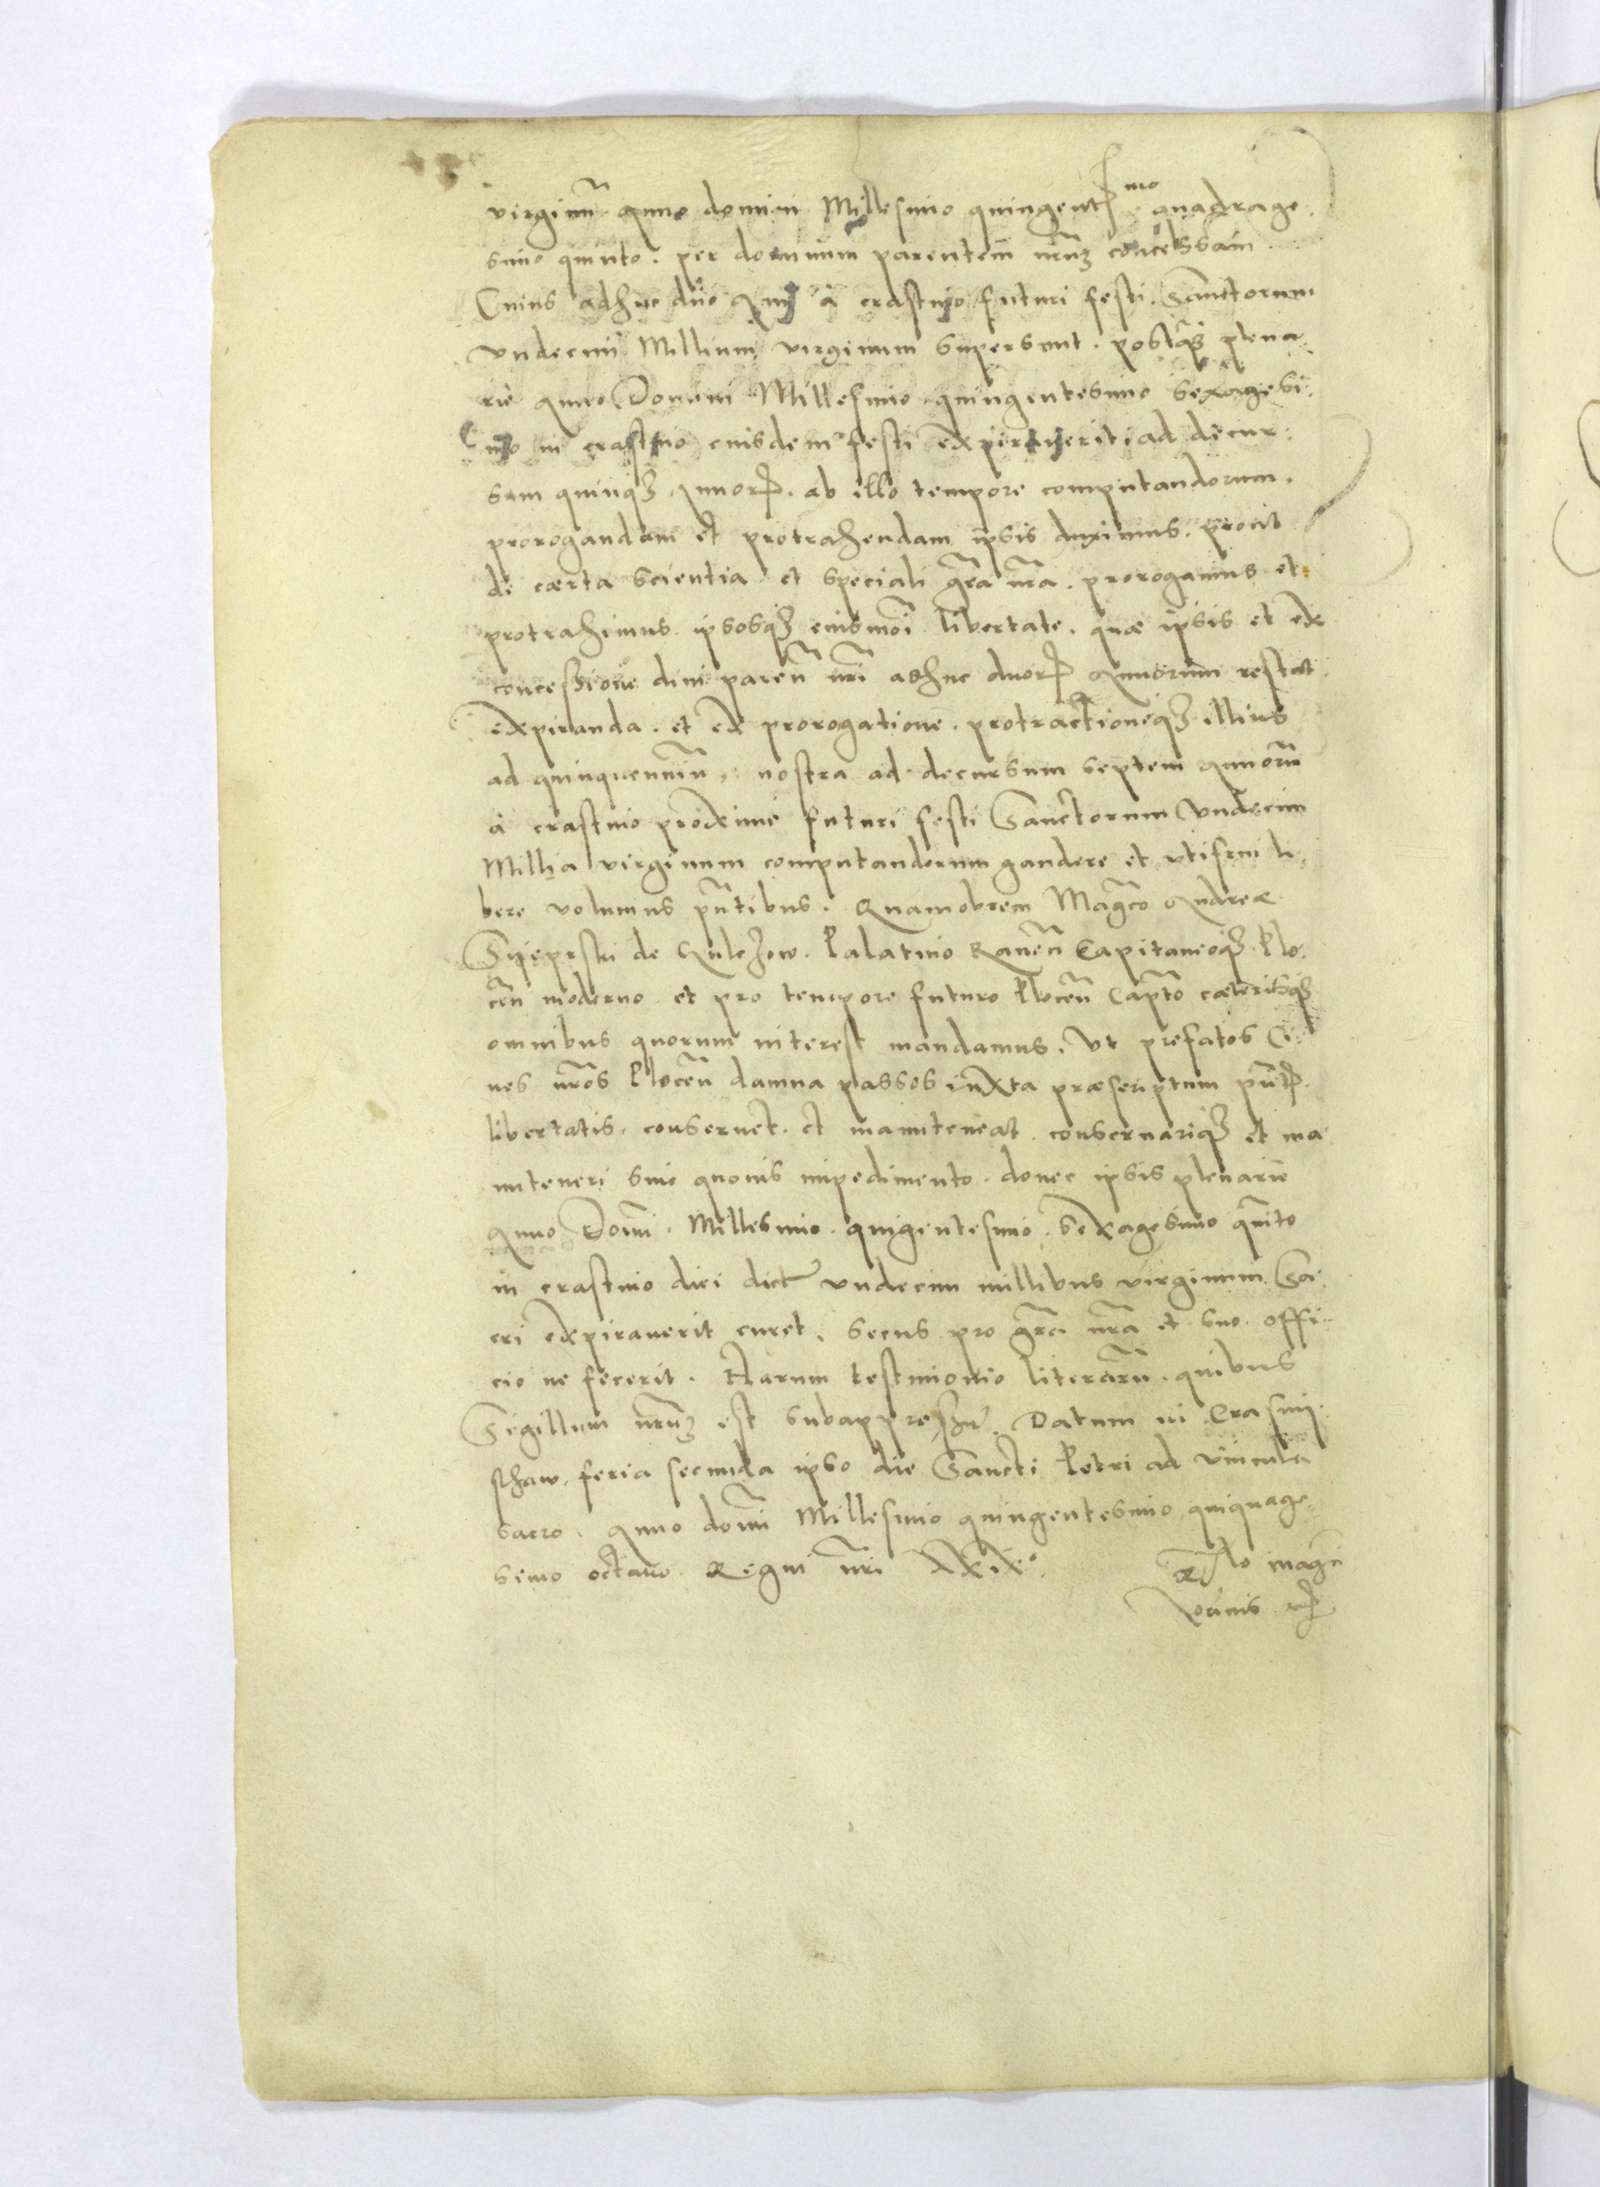 virginū anno domini Millesimo quingentesmo quadrage
simo quinto. per dominum parentem nrūm concessam
Cuius adhuc duo Anni à crastino futuri festi Sanctorum
vndecim Millium virginum supersunt. postqȝ plena
riè Anno Domini Millesimo quingentesimo sexagesi
mo in crastino eiusdem festi expiraverit: ad decur
sum quinqȝ Annorꝝ. ab illo tempore computandorum.
prorogandam et protrahendam ipsis duximus. prout
de certa scientia et speciali grā nrā. prorogamus et
protrahimus ipsosqȝ eiusmōi libertate. quæ ipsis et ex
concessione divi paren̄ nrī adhuc duorꝝ Annorum restat
expiranda. et ex prorogatione. protractioneqȝ illius
ad quinquenniū, nostra ad decursum septem Annorū
à crastino proximè futuri festi Sanctorum Vndecim
Millia virginum computandorum gaudere et vtifrui li
bere volumus pn̄tibus. Quamobrem Mag̃co Andreæ
de Palatino Raven̄ Capitaneoqȝ Plo
cen̄ moderno et pro tempore futuro Plocen̄ Capt̄o cæterisqȝ
omnibus quorum interest mandamus. Vt prefatos Ci
ues nrōs Plocen̄ damna passos iuxta præscriptum pn̄tꝝ
libertatis. conseruet. et manuteneat. conseruariqȝ et ma
nuteneri sine quouis impedimento. donec ipsis plenariè
Anno Domī. Millesimo. quigentesimo. sexagesimo quinto
in crastino diei dict̄ vndecim millibus virginum Sa
cri expirauerit curet. secus pro grā nrā et suo offi
cio ne fecerit. Harum testimonio literarū. quibus
Sigillum nrūm est subappressū. Datum in Crasnij
sthaw. feria secunda ipso die Sancti Petri ad vincula
sacro. Anno domī Millesimo quingentesimo quiquage
simo octauo. Regni nrī XXIX°.